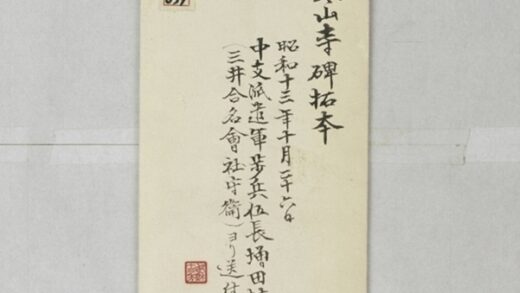 山寺碑拓本
昭和十三年十月二十六日
中支派遣軍歩兵伍長増田
(三井合名會社守衛)ヨリ送付